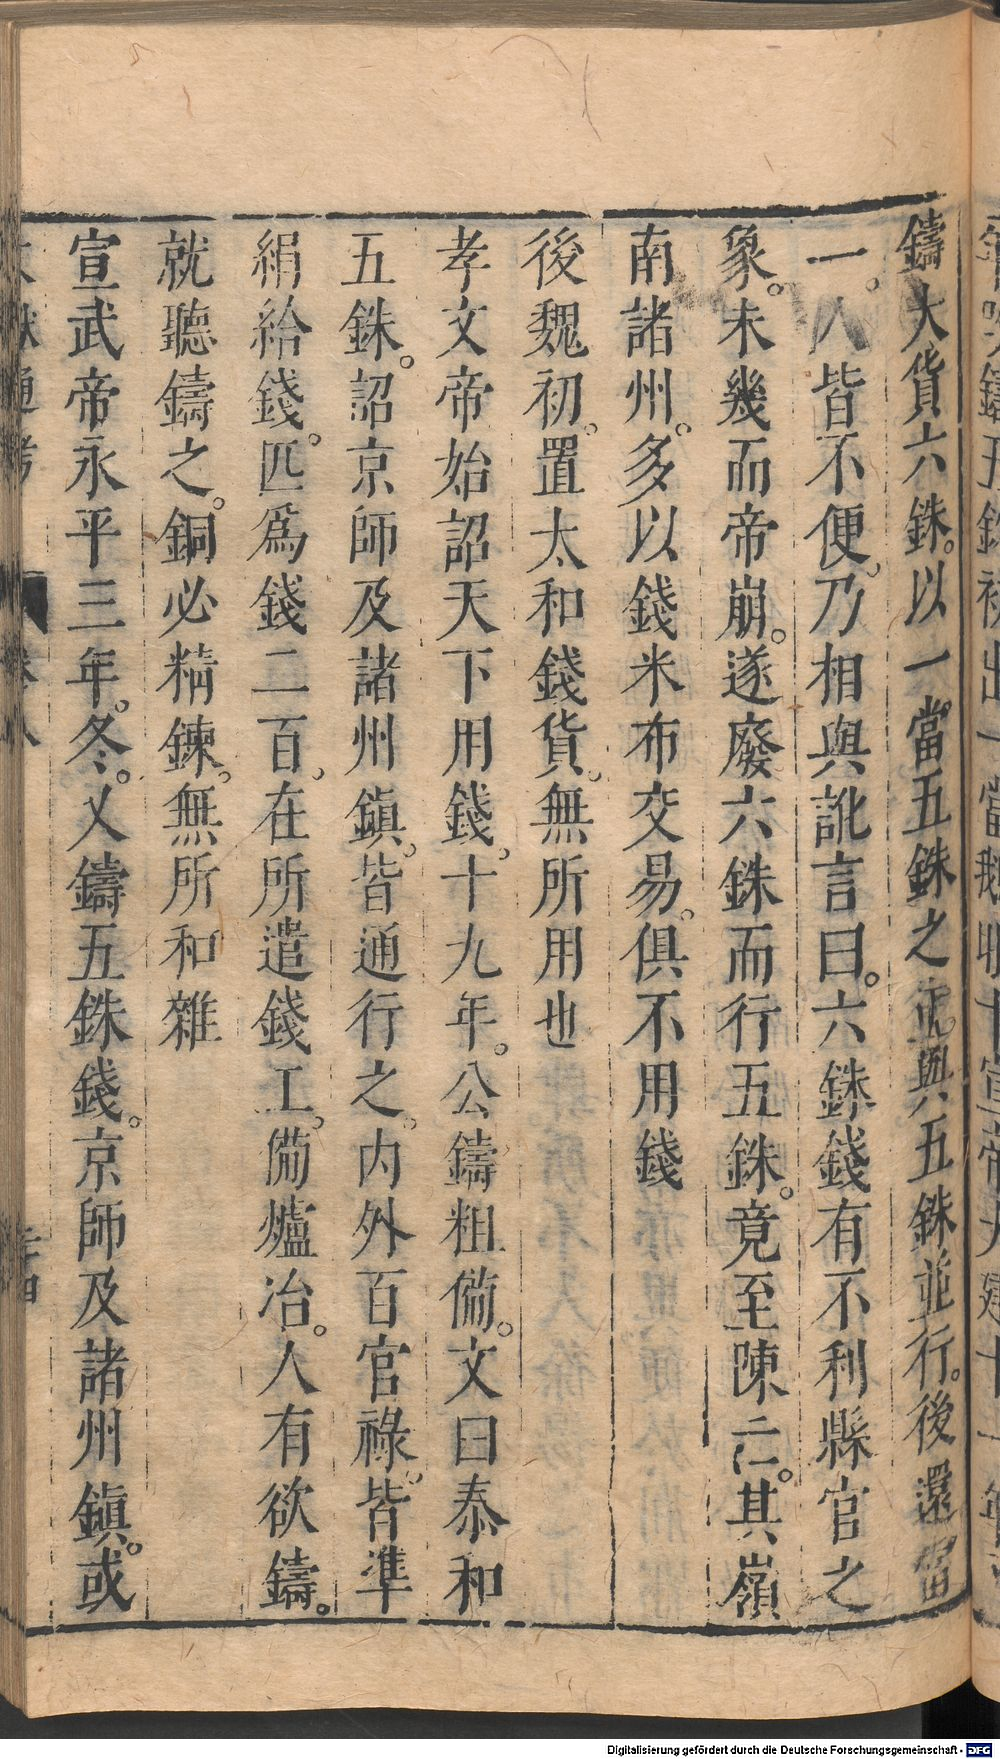 鑄大貨六銖。以一當五銖之並與五銖並行。後還當
一。人皆不便。乃相與訛言曰。六銖錢有不利縣官之
象。未幾而帝崩。遂廢六銖而行五銖。竟至陳亡。其嶺
南諸州。多以錢米布交易。俱不用錢
後魏初。置太和錢貨。無所用也
孝文帝始詔天下用錢。十九年。公鑄粗備。文曰泰和
五銖。詔京師及諸州鎮。皆通行之。內外百官祿。皆準
絹給錢。匹爲錢二百。在所遣錢工。備爐冶。人有欲鑄。
就聽鑄之。銅必精鍊。無所和雜
宣武帝永平三年。冬。又鑄五銖錢。京師及諸州鎮。或
Digitalisierung gefördert durch die Deutsche Forschungsgemeinschaft - DFG